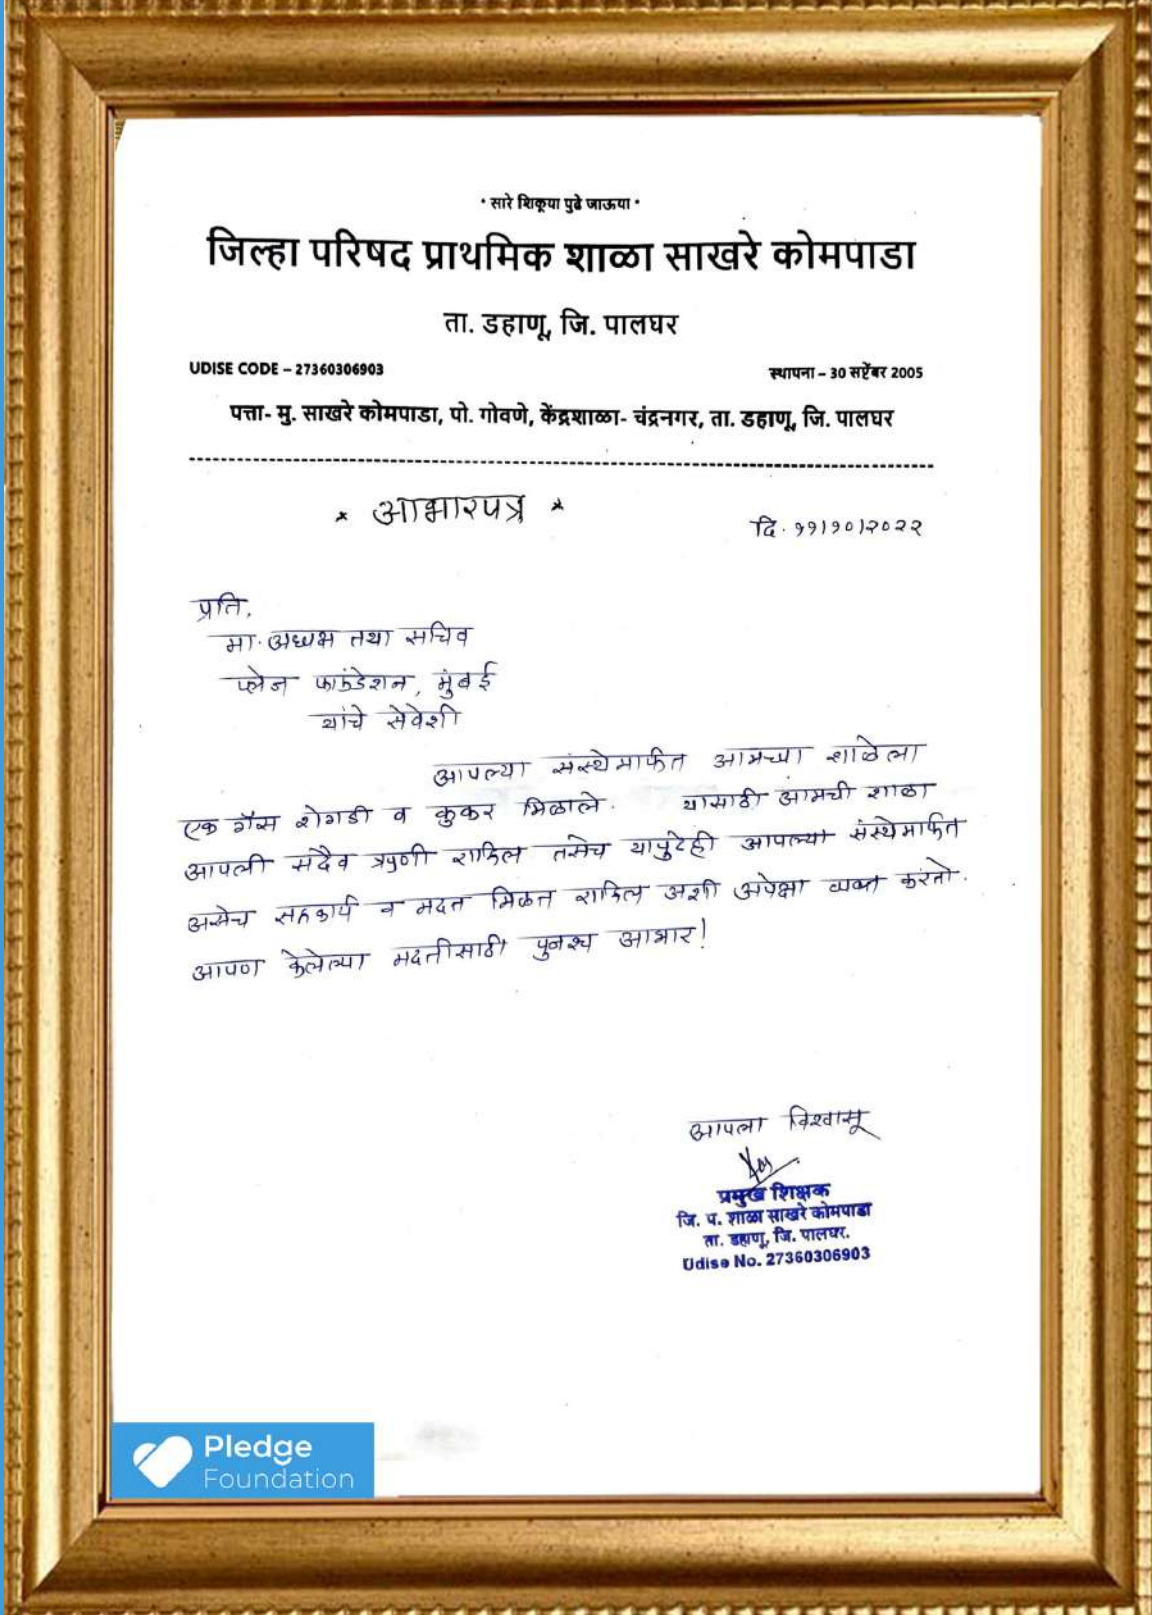 • सारे शिकूया पुढे जाऊया •
जिल्हा परिषद प्राथमिक शाळा साखरे कोमपाडा
ता. डहाणू, जि. पालघर
UDISE CODE – 27360306903
स्थापना – 30 सप्टेंबर 2005
पत्ता- मु. साखरे कोमपाडा, पो. गोवणे, केंद्रशाळा- चंद्रनगर, ता. डहाणू, जि. पालघर
* आभारपत्र *
दि. ११/१०/२०२२
प्रति,
मा. अध्यक्ष तथा सचिव
प्लेज फाऊंडेशन, मुंबई
यांचे सेवेशी
आपल्या संस्थेमार्फत आमच्या शाळेला
एक गॅस शेगडी व कुकर मिळाले. यासाठी आमची शाळा
आपली सदैव ऋणी राहिल तसेच यापुढेही आपल्या संस्थेमार्फत
असेच सहकार्य व मदत मिळत राहिल अशी अपेक्षा व्यक्त करतो.
आपण केलेल्या मदतीसाठी पुनश्च आभार!
आपला विश्वासू
प्रमुख शिक्षक
जि. प. शाळा साखरे कोमपाडा
ता. डहाणू, जि. पालघर.
Udise No. 27360306903
Pledge
Foundation